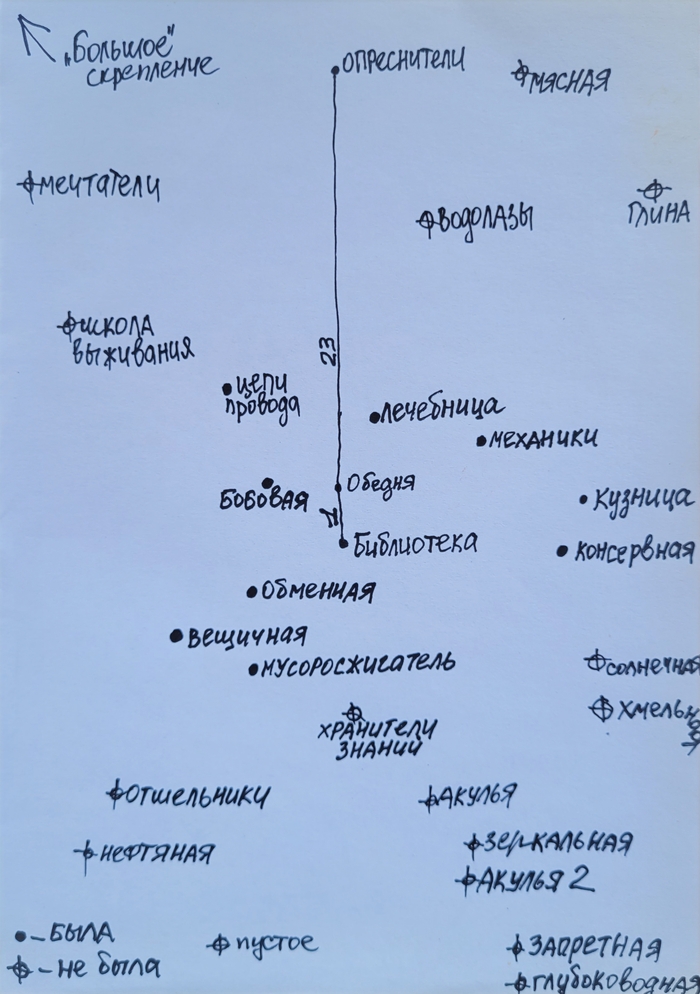 „Большое"
скрепление
опреснители
мясная
мечтатели
водолазы
глина
школа
выживания
23
цепи
провода
лечебница
механики
бобовая
Обедня
кузница
1
Библиотека
консервная
обменная
вещичная
мусоросжигатель
солнечная
хмельная
хранители
знаний
отшельники
акулья
нефтяная
зеркальная
акулья 2
- была
- не была
пустое
запретная
глубоководная